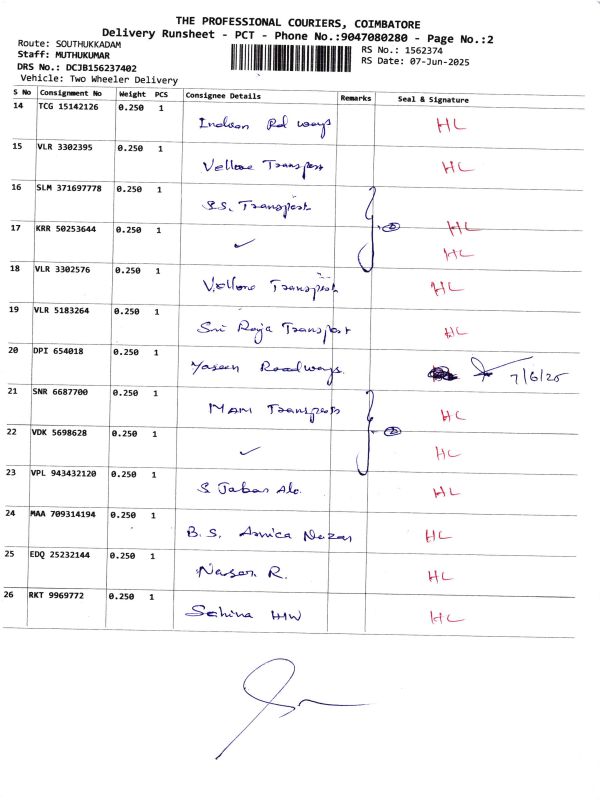 THE PROFESSIONAL COURIERS, COIMBATORE
Delivery Runsheet - PCT - Phone No.:9047080280 - Page No.:2
Route: SOUTHUKKADAM
Staff: MUTHUKUMAR
DRS No.: DCJB156237402
Vehicle: Two Wheeler Delivery
RS No.: 1562374
RS Date: 07-Jun-2025
S No Consignment No Weight PCS Consignee Details Remarks Seal & Signature
14 TCG 15142126 0.250 1 Indian Rd ways HL
15 VLR 3302395 0.250 1 Vellore Transport HL
16 SLM 371697778 0.250 1 S.S. Transport HL
17 KRR 50253644 0.250 1 ✓ 2 HL
18 VLR 3302576 0.250 1 Vellore Transport HL
19 VLR 5183264 0.250 1 Sri Raja Transport HL
20 DPI 654018 0.250 1 Yaseen Roadways. 7/6/25
21 SNR 6687700 0.250 1 MAM Transports HL
22 VDK 5698628 0.250 1 ✓ 2 HL
23 VPL 943432120 0.250 1 S Jabar Ale. HL
24 MAA 709314194 0.250 1 B.S. Nezar HL
25 EDQ 25232144 0.250 1 R. HL
26 RKT 9969772 0.250 1 HW HL